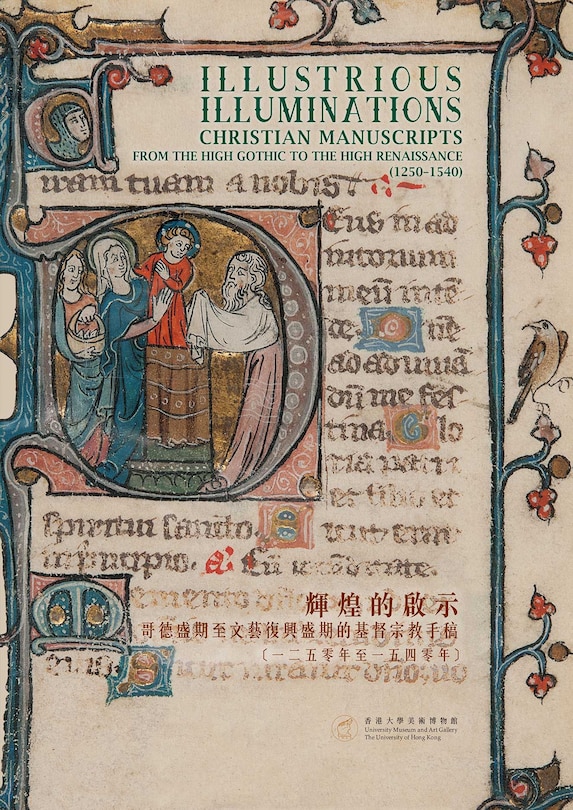 ILLUSTRIOUS
ILLUMINATIONS
CHRISTIAN MANUSCRIPTS
FROM THE HIGH GOTHIC TO THE HIGH RENAISSANCE
(1250–1540)
tuam a nobis
Deus in ad
iutorium
meū inte
de
ad adiuuā
dū me fes
tina Glo
ria patri
et filio et
spiritui sancto
輝煌的啟示
哥德盛期至文藝復興盛期的基督宗教手稿
〔一二五零年至一五四零年〕
香港大學美術博物館
University Museum and Art Gallery
The University of Hong Kong